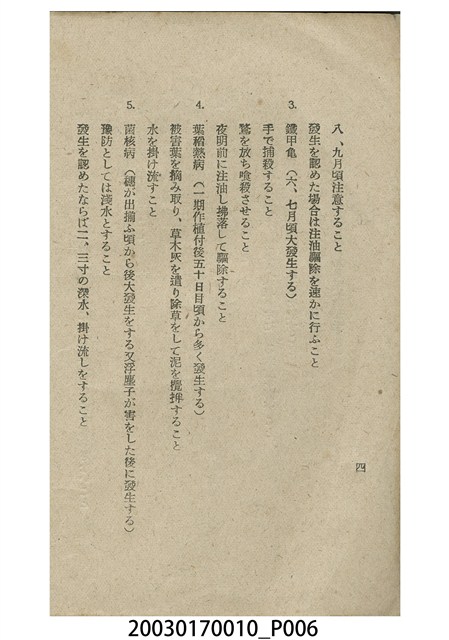 八、九月頃注意すること
發生を認めた場合は注油驅除を速かに行ふこと
3. 鐵甲亀（六、七月頃大發生する）
手で捕殺すること
鶩を放ち喰殺させること
夜明前に注油し拂落して驅除すること
4. 葉稻熱病（一期作植付後五十日目頃から多く發生する）
被害葉を摘み取り、草木灰を遣り除草をして泥を攪拌すること
水を掛け流すこと
5. 菌核病（穗が出揃ふ頃から後大發生をする又浮塵子が害をした後に發生する）
豫防としては淺水とすること
發生を認めたならば二、三寸の深水、掛け流しをすること
四
20030170010_P006